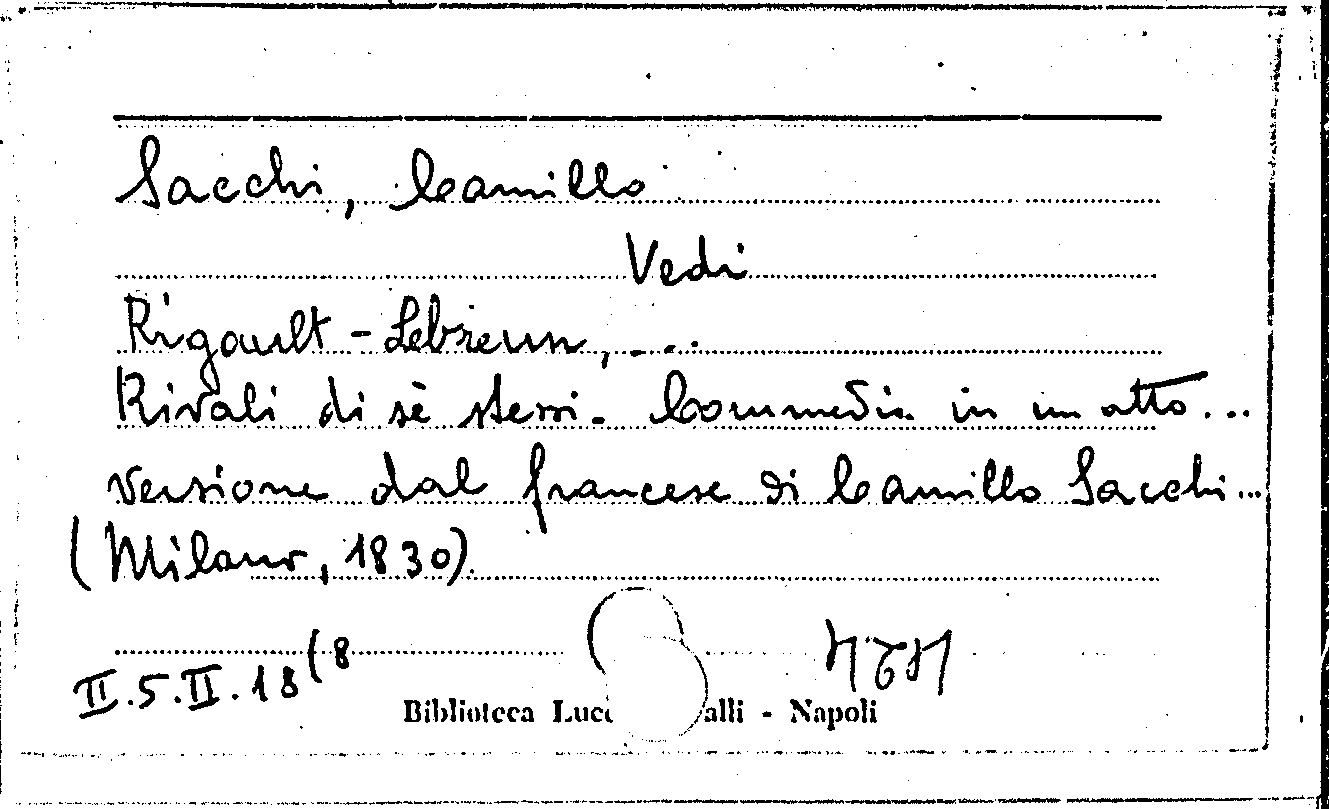 Sacchi, Camillo
Vedi
Rigault-Lebrun, ...
Rivali di sè stessi. Commedia in un atto...
versione dal francese di Camillo Sacchi...
(Milano, 1830)
II.5.II.18(8
Biblioteca Lucc alli - Napoli